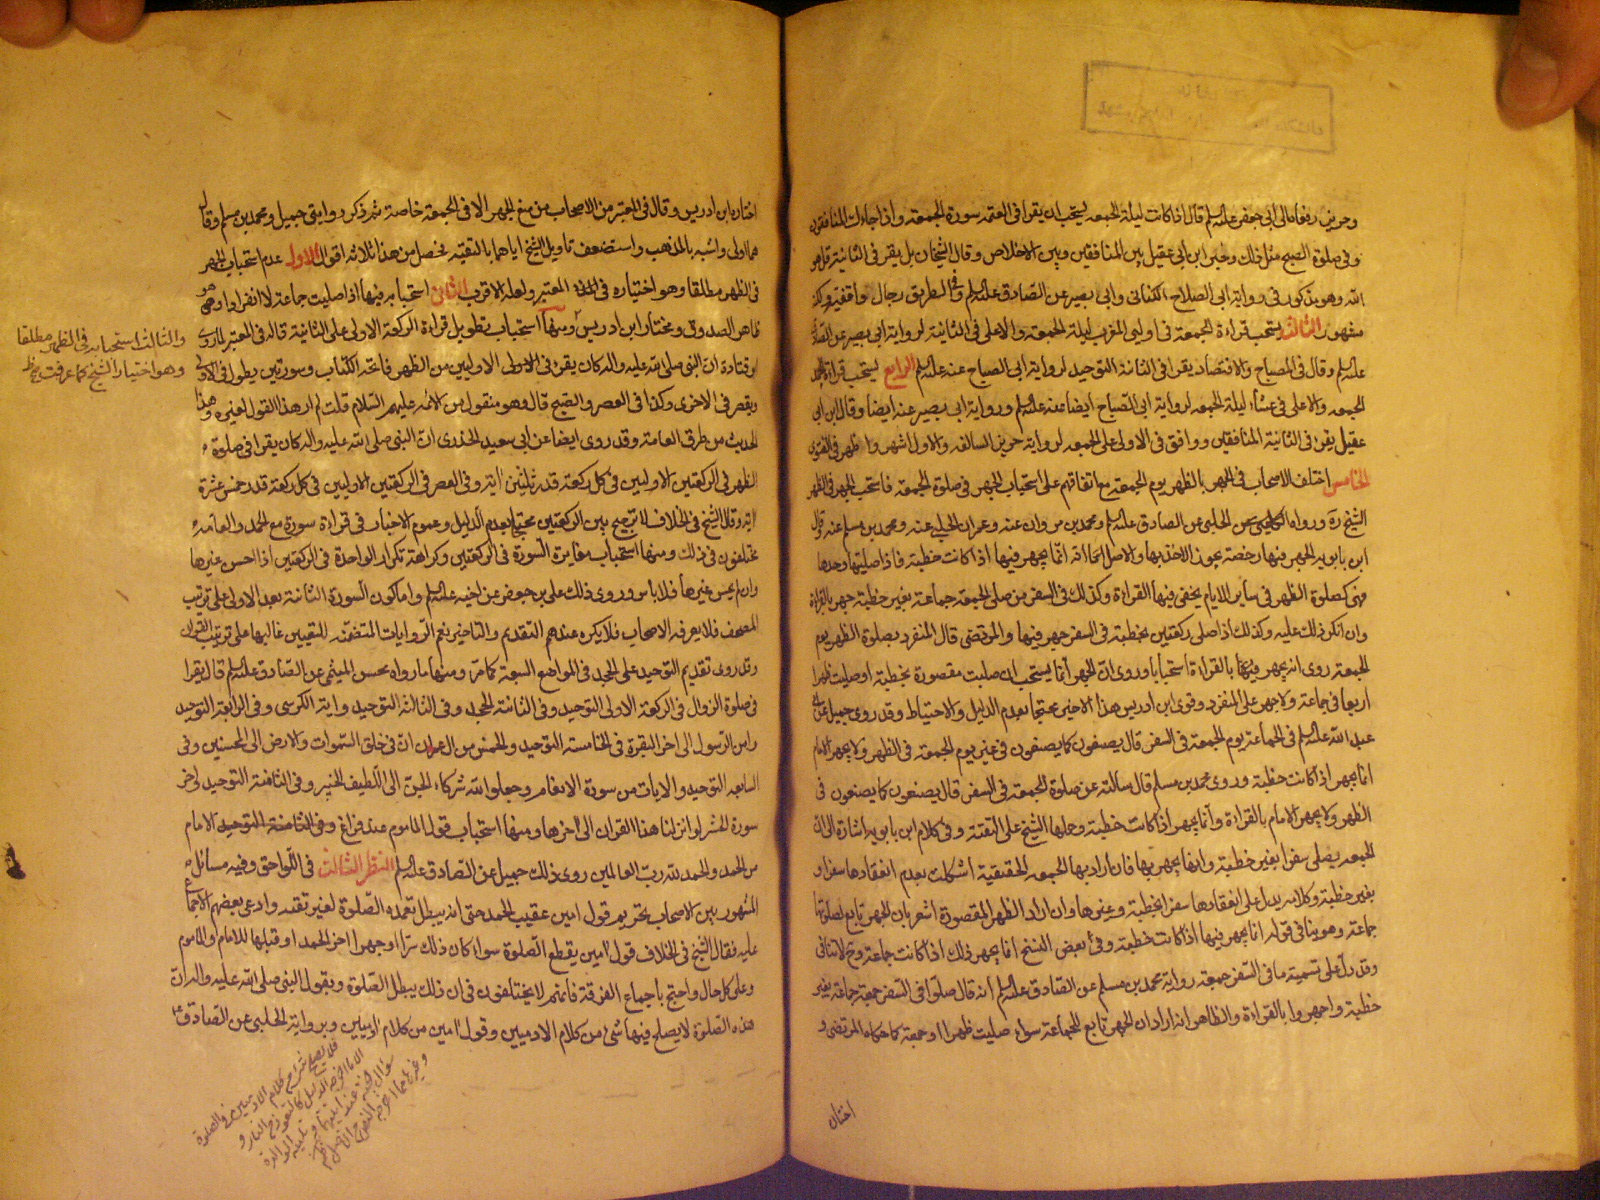 وحريز رفعاه الى ابى جعفر عليه السلم قال اذا كانت ليلة الجمعه يستحب ان يقرا فى العتمه سورة الجمعه واذا جاءك المنافقون
وفى صلوة الصبح مثل ذلك وخير ابن ابى عقيل بين المنافقين وبين الاخلاص وقال الشيخان بل يقرء فى الثانية قل هو
الله وهو مذكور فى رواية ابى الصلاح الكنانى وابى بصير عن الصادق عليه السلم وفى الطريق رجال واقفية ولكنه
مشهور الثالث يستحب قراءة الجمعة فى اوليى المغرب ليلة الجمعة والاعلى فى الثانية لرواية ابى بصير عن الصادق
عليه السلم وقال فى المصباح والاقتصاد يقرا فى الثانية التوحيد لرواية ابى الصباح عنه عليه السلم الرابع يستحب قراءة
الجمعه والاعلى فى عشاء ليلة الجمعه لرواية ابى الصباح ايضا عنه عليه السلم ورواية ابى بصير عنه ايضا وقال ابن ابى
عقيل يقرء فى الثانية المنافقين ووافق فى الاولى على الجمعه لرواية حريز السالفه والاول اشهر واظهر فى الفتوى
الخامس اختلف الاصحاب فى الجهر بالظهر يوم الجمعه مع اتفاقهم على استحباب الجهر فى صلوة الجمعه فاستحب الجهر فى الظهر
الشيخ ره ورواه الحلبى عن الصادق عليه السلم ومحمد بن مروان عنه وعمران الحلبى عنه ومحمد بن مسلم عنه وقال
ابن بابويه الجهر فيها رخصة يجوز الاخذ بها والاصل انه انما يجهر فيها اذا كانت خطبة فاذا صليتها وحدها
فهى كصلوة الظهر فى ساير الايام يخفى فيها القراءة وكذلك فى السفر من صلى الجمعه جماعة بغير خطبة جهر بالقراءة
وان انكر ذلك عليه وكذلك اذا صلى ركعتين بخطبة فى السفر جهر فيها والمرتضى قال المنفرد بصلوة الظهر يوم
الجمعة روى انه يجهر فيها بالقراءة استحبابا وروى ان الجهر انما يستحب لمن صليت مقصورة بخطبة او صليت ظهرا
اربعا فى جماعة ولا جهر على المنفرد وقوى ابن ادريس هذا الاخير محتجا بعدم الدليل والاحتياط وقد روى جميل عن ابى
عبد الله عليه السلم فى الجماعة يوم الجمعة فى السفر قال يصنعون كما يصنعون فى غير يوم الجمعة فى الظهر ولا يجهر الامام
انما يجهر اذا كانت خطبة وروى محمد بن مسلم قال سالته عن صلوة الجمعة فى السفر قال يصنعون كما يصنعون فى
الظهر ولا يجهر الامام بالقراءة وانما يجهر اذا كانت خطبة وحملها الشيخ على التقية وفى كلام ابن بابويه اشارة الى ان
الجمعه يصلى سفرا بغير خطبة وانها يجهر بها فان اراد بها الجمعه الحقيقية اشكلت بعدم انعقادها سفرا و
بغير خطبة وكلامه يدل على انعقادها سفرا بخطبة وغيرها وان اراد الظهر المقصورة اشعر بان الجهر تابع لصلوتها
جماعة وهو ينافى قوله انما يجهر فيها اذا كانت خطبة وفى بعض النسخ انما يجهر ذلك اذا كانت جماعة وح لا تنافى
وقد دل على تسميته ما فى السفر جمعه رواية محمد بن مسلم عن الصادق عليه السلم انه قال صلوا فى السفر جمعة جماعة بغير
خطبة واجهروا بالقراءة والظاهر انه اراد ان الجهر تابع للجماعة سواء صليت ظهرا او جمعة كما حكاه المرتضى و
اختاره
اختاره ابن ادريس وقال فى المعتبر من الاصحاب من منع الجهر الا فى الجمعة خاصة ثم ذكر روايتى جميل ومحمد بن مسلم وقال
هما اولى واشبه بالمذهب واستضعف تاويل الشيخ اياهما بالتقية تحصل من هذا ثلاثة اقوال الاول عدم استحباب الجهر
فى الظهر مطلقا وهو اختياره فى المعتبر ولعله الاقرب الثانى استحبابه فيها اذا صليت جماعة لا انفرادا وهو
ظاهر الصدوق ومختار ابن ادريس ومنها استحباب تطويل قراءة الركعة الاولى على الثانية قاله فى المعتبر لما روى
ابو قتادة ان النبى صلى الله عليه واله كان يقرء فى الاوليين من الظهر فاتحة الكتاب وسورتين يطول فى الاولى
ويقصر فى الاخرى وكذا فى العصر والصبح قال وهو منقول من الائمه عليهم السلام قلت لم ار هذا القول لغيره وهذا
الحديث من طرق العامة وقد روى ايضا عن ابى سعيد الخدرى ان النبى صلى الله عليه واله كان يقرا فى صلوة
الظهر فى الركعتين الاوليين فى كل ركعة قدر ثلثين اية وفى العصر فى الركعتين الاوليين فى كل ركعة قدر خمس عشرة
اية وقال الشيخ فى الخلاف لا ترجيح بين الركعتين محتجا بعدم الدليل وعموم الاخبار فى قراءة سورة مع الحمد والعامة
مختلفون فى ذلك ومنها استحباب مغايرة السورة فى الركعتين وكراهة تكرار الواحدة فى الركعتين اذا احسن غيرها
وان لم يحسن غيرها فلا باس وروى ذلك على بن جعفر عن اخيه عليه السلم واما كون السورة الثانية بعد الاولى على ترتيب
المصحف فلا يعرفه الاصحاب فلا يكره عندهم التقديم والتاخير نعم الروايات المتضمنه للتعيين غالبها على ترتيب القران
وقد روى تقديم التوحيد على الجحد فى المواضع السبعة كما مر ومنها ما رواه محسن الميثمى عن الصادق عليه السلم قال يقرا
فى صلوة الزوال فى الركعة الاولى التوحيد وفى الثانية الجحد وفى الثالثة التوحيد واية الكرسى وفى الرابعة التوحيد
وامن الرسول الى اخر البقرة فى الخامسة التوحيد والخمس من ال عمران ان فى خلق السموات والارض الى المحسنين وفى
السابعه التوحيد والايات من سورة الانعام وجعلوا لله شركاء الجن الى اللطيف الخبير وفى الثامنة التوحيد واخر
سورة الحشر لو انزلنا هذا القران الى اخرها ومنها استحباب قول الماموم عند فراغ الامام
من الحمد والحمد لله رب العالمين روى ذلك جميل عن الصادق عليه السلم النظر الثالث فى اللواحق وفيه مسائل
المشهور بين الاصحاب تحريم قول امين عقيب الحمد حتى انه يبطل تعمده الصلوة لغير تقية وادعى بعضهم الاجماع
عليه فقال الشيخ فى الخلاف قول امين يقطع الصلوة سواء كان ذلك سرا او جهرا اخر الحمد او قبلها للامام والماموم
وعلى كل حال واحتج باجماع الفرقة فانهم لا يختلفون فى ان ذلك يبطل الصلوة وبقول النبى صلى الله عليه واله ان
هذه الصلوة لا يصلح فيها شئ من كلام الادميين وقول امين من كلام الادميين وبرواية الحلبى عن الصادق
والثالث استحبابه فى الظهر مطلقا
وهو اختيار الشيخ كما عرفت